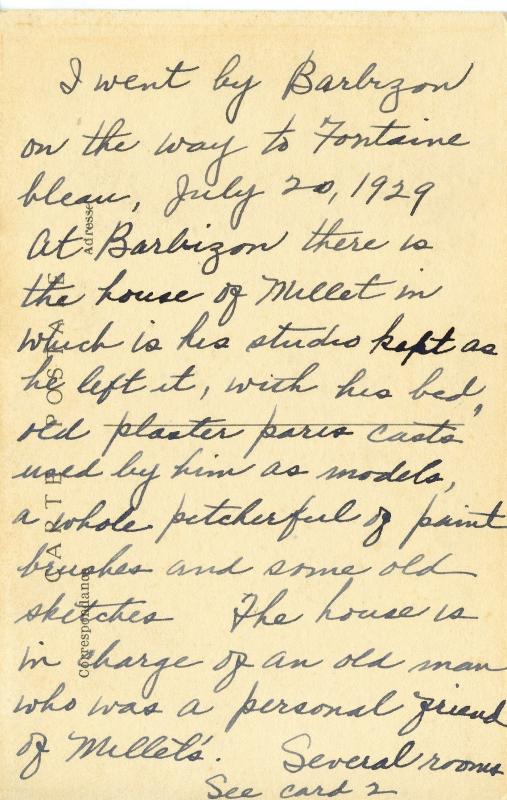 I went by Barbizon
on the way to Fontaine
bleau, July 20, 1929
At Barbizon there is
the house of Millet in
which is his studio kept as
he left it, with his bed,
old plaster paris casts
used by him as models,
a whole pitcherful of paint
brushes and some old
sketches The house is
in charge of an old man
who was a personal friend
of Millets'. Several rooms
See card 2
CARTE POSTALE
Correspondance
Adresse